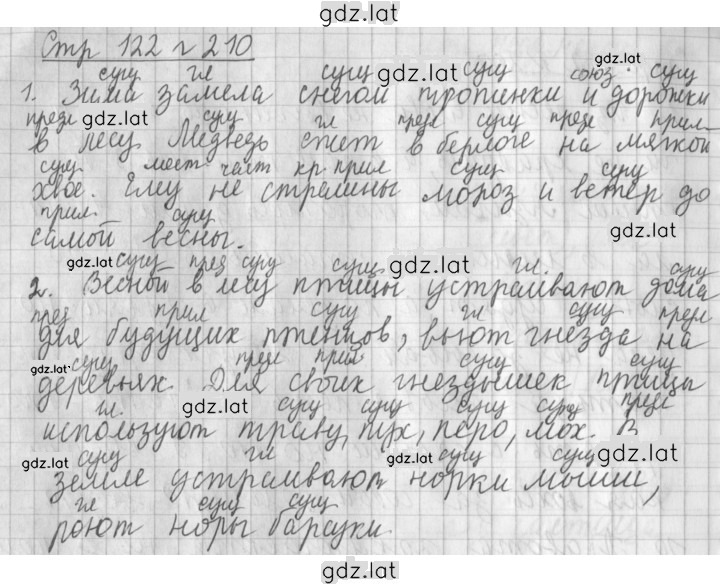 gdz.lat
Стр 122 г 210
gdz.lat
сущ гл сущ gdz.lat сущ союз сущ
1. Зима замела снегом тропинки и дорожки
предл gdz.lat сущ гл предл сущ предл прил
в лесу. Медведь спит в берлоге на мягкой
сущ мест част кр прил сущ сущ
хвое. Ему не страшны мороз и ветер до
прил сущ gdz.lat
самой весны.
gdz.lat сущ пред сущ сущ gdz.lat гл. сущ
2. Весной в лесу птицы устраивают дома
пред прил сущ гл сущ предл
для будущих птенцов, вьют гнезда на
gdz.lat сущ предл прил сущ сущ
деревьях. Для своих гнездышек птицы
гл. gdz.lat сущ сущ сущ сущ предл
используют траву, пух, перо, мох. В
gdz.lat сущ гл gdz.lat сущ сущ gdz.lat
земле устраивают норки мыши,
гл сущ сущ
роют норы барсуки.
gdz.lat